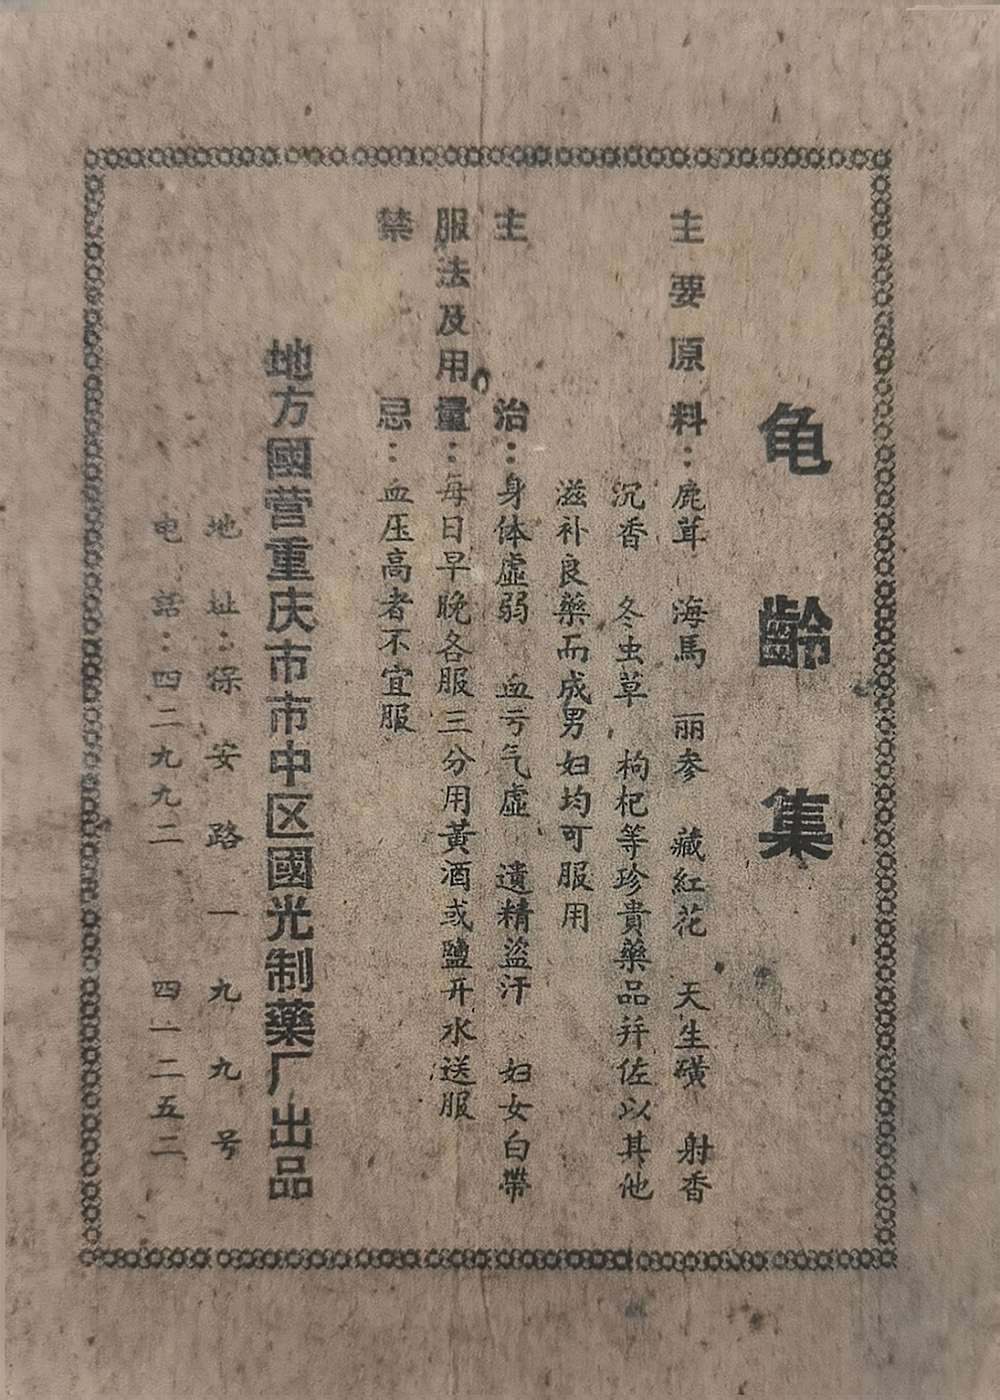 龟齡集
主要原料：鹿茸 海馬 丽参 藏紅花 天生磺 射香
沉香 冬虫草 枸杞等珍貴藥品并佐以其他
滋补良藥而成男妇均可服用
主治：身体虚弱 血亏气虚 遺精盗汗 妇女白帶
服法及用量：每日早晚各服三分用黃酒或鹽开水送服
禁忌：血压高者不宜服
地方國营重庆市市中区國光制藥厂出品
地址：保安路一九九号
电話：四二九九二 四一二五二